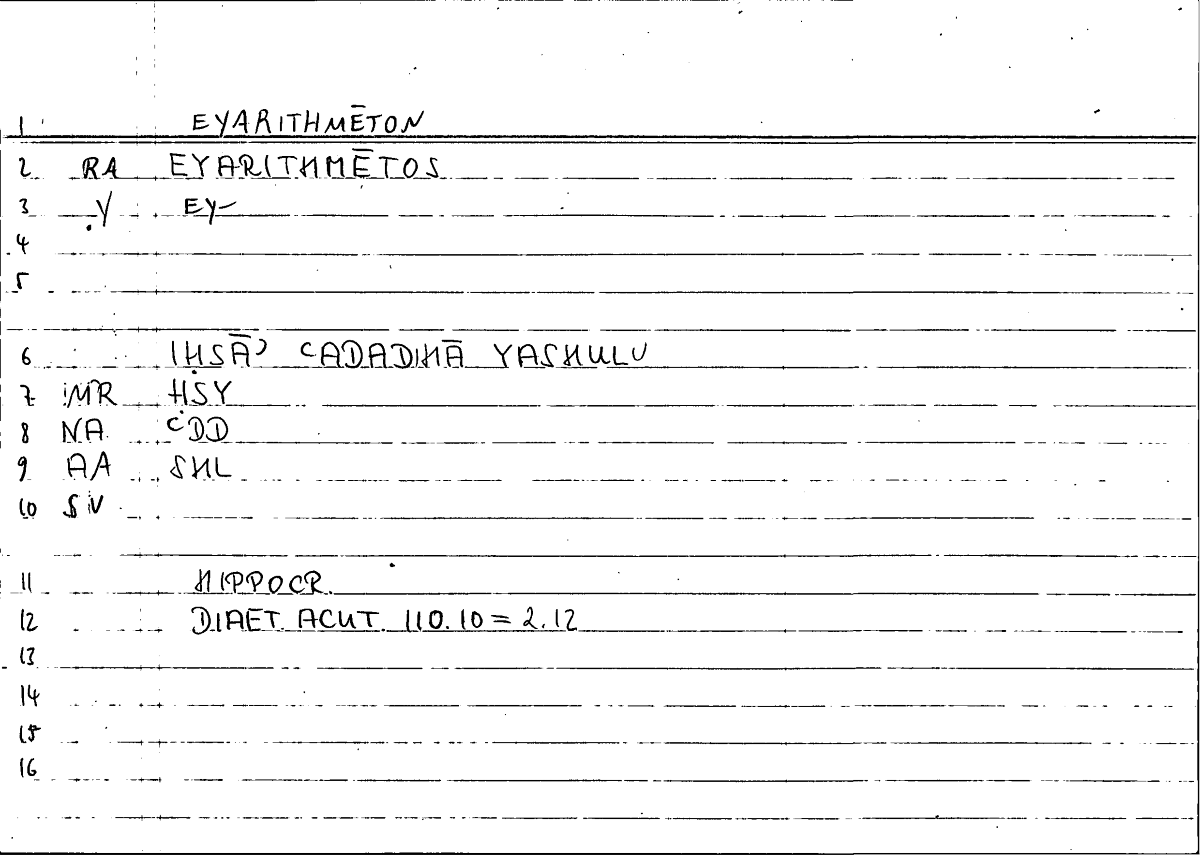 1 EYARITHMĒTON
2 RA EYARITHMĒTOS
3 Ỵ EY-
4
5
6 IḤṢĀʾ ʿADADIHĀ YASHULU
7 MR ḤṢY
8 NA ʿDD
9 AA SHL
10 SV
11 HIPPOCR.
12 DIAET. ACUT. 110.10 = 2.12
13
14
15
16